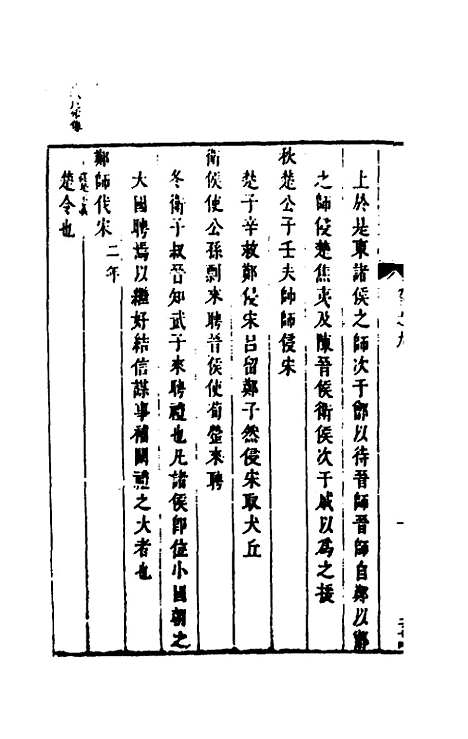 上於是東諸侯之師次于鄫以待晉師晉師自鄭以鄫
之師侵楚焦夷及陳晉侯衛侯次于戚以為之援
秋楚公子壬夫帥師侵宋
楚子辛救鄭侵宋呂留鄭子然侵宋取犬丘
衛侯使公孫剽來聘晉侯使荀罃來聘
冬衛子叔晉知武子來聘禮也凡諸侯即位小國朝之
大國聘焉以繼好結信謀事補闕禮之大者也
二年
鄭師伐宋
楚令也